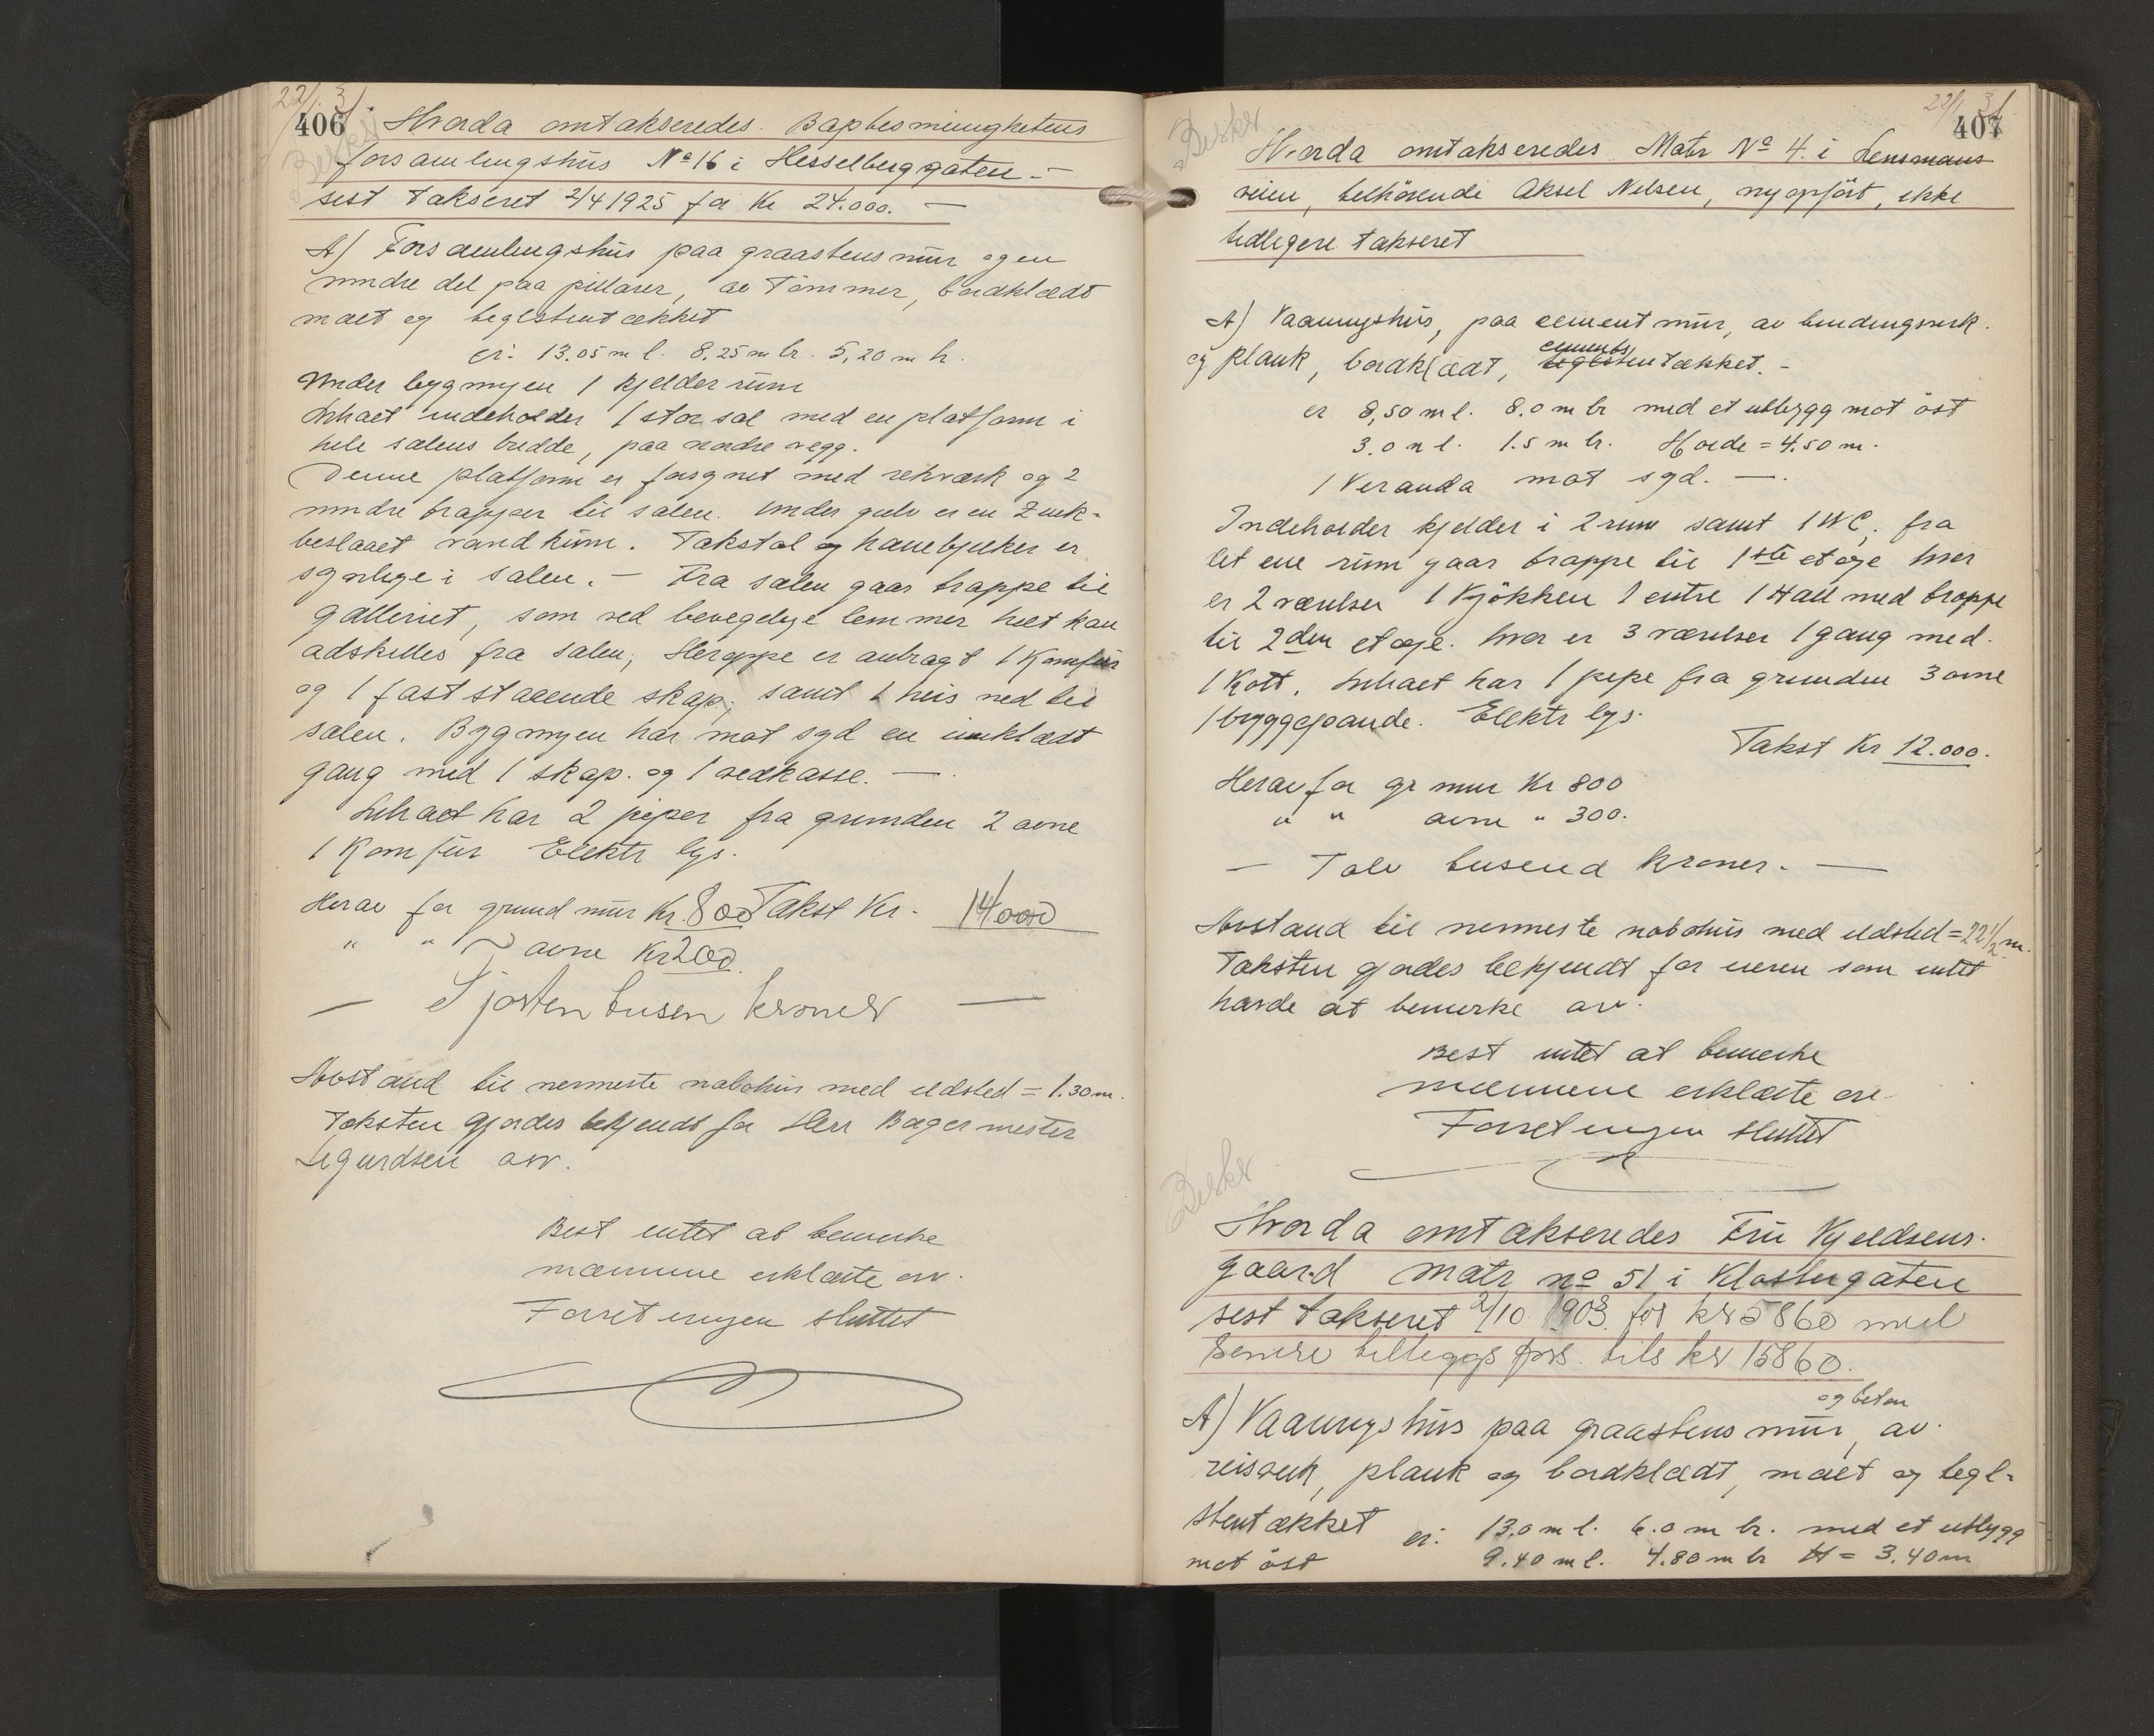 22/1. 31.
406 Hvorda omtakseredes. Baptesmenighetens
forsamlingshus No 16 i Hesselberggaten. -
sist takseret 2/4 1925 for Kr 24.000. —
A/ Forsamlingshus paa graastensmur og en
mindre del paa pillarer, av Tömmer, bordklædt
malt og teglstentækket
er: 13.05 m l. 8,25 m br. 5,20 m h.
Under bygningen 1 kjelderrum
Inhaet indeholder 1 stor sal med en platform i
hele salens bredde, paa nordre vegg.
Denne platform er forsynet med rekværk og 2
mindre trapper til salen. Under gulv er en Zink-
beslaaet vandkum. Takstol og hanebjelker er
synlige i salen. — Fra salen gaar trappe til
galleriet, som ved bevegelige lemmer helt kan
adskilles fra salen; Heroppe er anbragt 1 Komfur
og 1 faststaaende skap; samt 1 heis ned til
salen. Bygningen har mot syd en innklædt
gang med 1 skap. og 1 vedkasse. —
Inhaet har 2 piper fra grunden 2 ovne
1 Komfur Elektr lys.
Herav for grundmur Kr. 800 Takst Kr. 14000
" " ovne Kr 200
— Fjorten tusen kroner —
Avstand til nermeste nabohus med ildsted = 1.30 m.
Taksten gjordes bekjendt for Herr Bagermester
Sigurdsen osv.
Best intet at bemerke
mænnene erklærte osv.
Forretningen sluttet
22/1 31
407
Beskr
Hvorda omtakseredes Matr No 4. i Lensmans
veien, tilhörende Aksel Nilsen, nyopfört, ikke
tidligere takseret
A) Vaaningshus, paa cementmur, av bindingsverk.
cements
og plank, bordklædt, teglstentækket. -
er 8,50 m l. 8.0 m br med et utbygg mot öst
3.0 m l. 1.5 m br. Höide = 4.50 m.
1 Veranda mot syd. —.
Indeholder kjelder i 2 rum samt 1 WC. fra
det ene rum gaar trappe til 1ste etage hvor
er 2 værelser 1 Kjökken 1 entre 1 Hall med trappe
til 2den etage. hvor er 3 værelser 1 gang med
1 Kott. Inhaet har 1 pipe fra grunden 3 ovne
1 bryggepande. Elektr lys.
Takst Kr 12.000.
Herav for gr mur Kr 800
" " ovne " 300.
— Tolv tusend kroner. —
Avstand til nermeste nabohus med ildsted = 22 1/2 m.
Taksten gjordes bekjendt for eieren som intet
havde at bemerke osv.
Best intet at bemerke
mænnene erklærte osv
Forretningen sluttet
Beskr
Hvorda omtakseredes Fru Kjeldsens.
gaard matr no 51 i Klostergaten
sist takseret 2/10 1903 for kr 5860 med
Senere tilleggs fors. tils kr 15860.
og beton
A) Vaaningshus paa graastensmur, av
reisverk, plank og bordklædt, malt og tegl-
stentækket er: 13.0 m l. 6.0 m br. med et utbygg
mot öst 9.40 m l. 4.80 m br H = 3.40 m